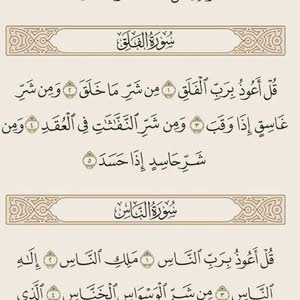 سُورَةُ الفَلَقِ
قُلْ أَعُوذُ بِرَبِّ ٱلْفَلَقِ ١ مِن شَرِّ مَا خَلَقَ ٢ وَمِن شَرِّ
غَاسِقٍ إِذَا وَقَبَ ٣ وَمِن شَرِّ ٱلنَّفَّٰثَٰتِ فِى ٱلْعُقَدِ ٤ وَمِن
شَرِّ حَاسِدٍ إِذَا حَسَدَ ٥
سُورَةُ النَّاسِ
قُلْ أَعُوذُ بِرَبِّ ٱلنَّاسِ ١ مَلِكِ ٱلنَّاسِ ٢ إِلَٰهِ
ٱلنَّاسِ ٣ مِن شَرِّ ٱلْوَسْوَاسِ ٱلْخَنَّاسِ ٤ ٱلَّذِى